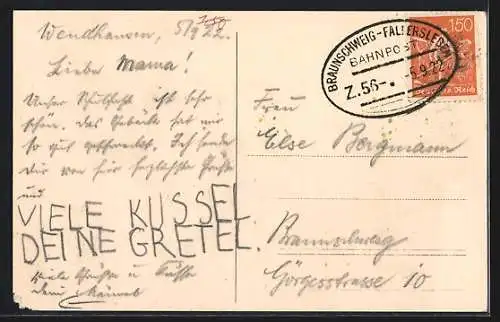 Wendhausen, 5/9 22.
Liebe Mama!
Unser Schulfest ist sehr
schön. Das Gebäck hat mir
so gut geschmeckt. Ich sende
Dir von hier herzlichste Grüße
und
VIELE KÜSSE!
DEINE GRETEL.
Viele Grüße u. Küsse
dein
BRAUNSCHWEIG-FALLERSLEBEN
BAHNPOST
Z.56 5.9.22
150
Deutsches Reich
Frau
Else Bergmann
Braunschweig
Görgesstrasse 10